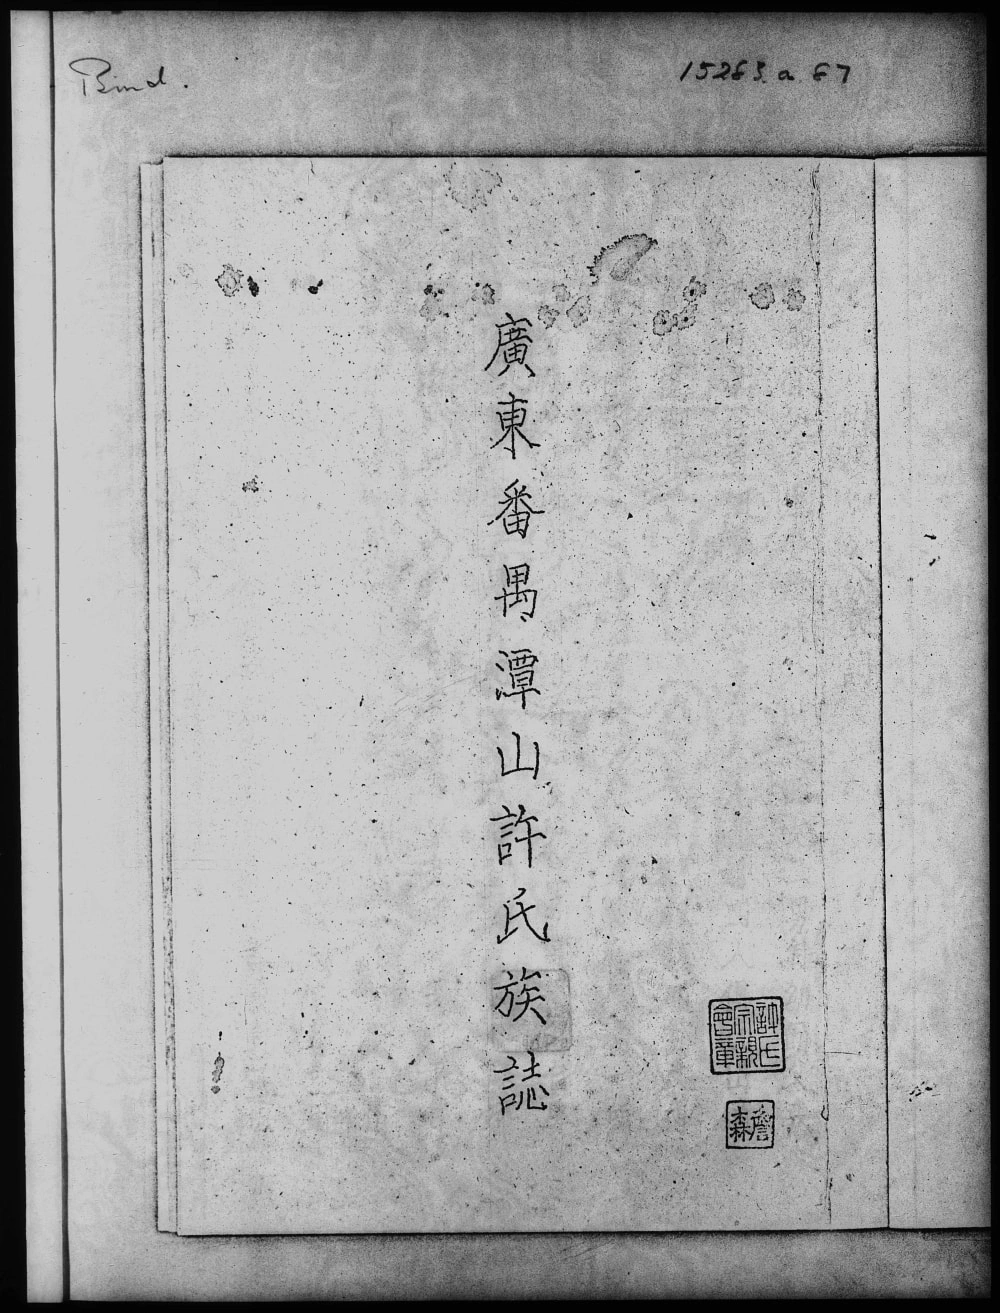 Bind.
15283.a.67
廣東番禺潭山許氏族誌
許氏
宗親
會章
詹森